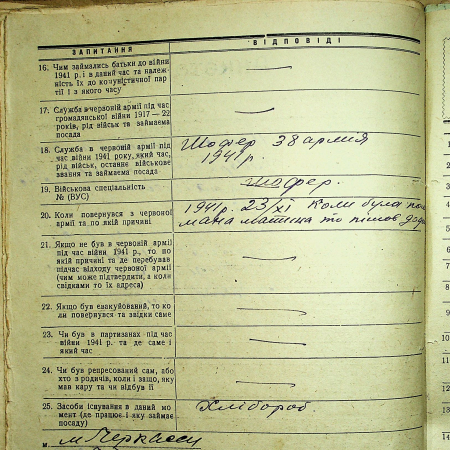 ЗАПИТАННЯ
ВІДПОВІДІ
16. Чим займались батьки до війни
1941 р. і в даний час та належ-
ність їх до комуністичної пар-
тії і з якого часу
—
17. Служба в червоній армії під час
громадянської війни 1917—22
років, рід військ та займаєма
посада
—
18. Служба в червоній армії під
час війни 1941 року, який час,
рід військ, останнє військове
звання та займаєма посада
Шофер 38 армія
1941 р.
19. Військова спеціальність
№ (ВУС)
Шофер.
20. Коли повернувся з червоної
армії та по якій причині
1941 р. 23/XI Коли була
машина то пішов
21. Якщо не був в червоній армії
під час війни 1941 р., то по
якій причині та де перебував
підчас відходу червоної армії
(чим може підтвердити, а коли
свідками то їх адреса)
—
22. Якщо був евакуйований, то ко-
ли повернувся та звідки саме
—
23. Чи був в партизанах під час
війни 1941 р. та де саме і
який час
—
24. Чи був репресований сам, або
хто з родичів, коли і защо, яку
мав кару та чи відбув її
—
25. Засоби існування в даний мо-
мент (де працює і яку займає
посаду)
Хлібороб.
м. Черкасси